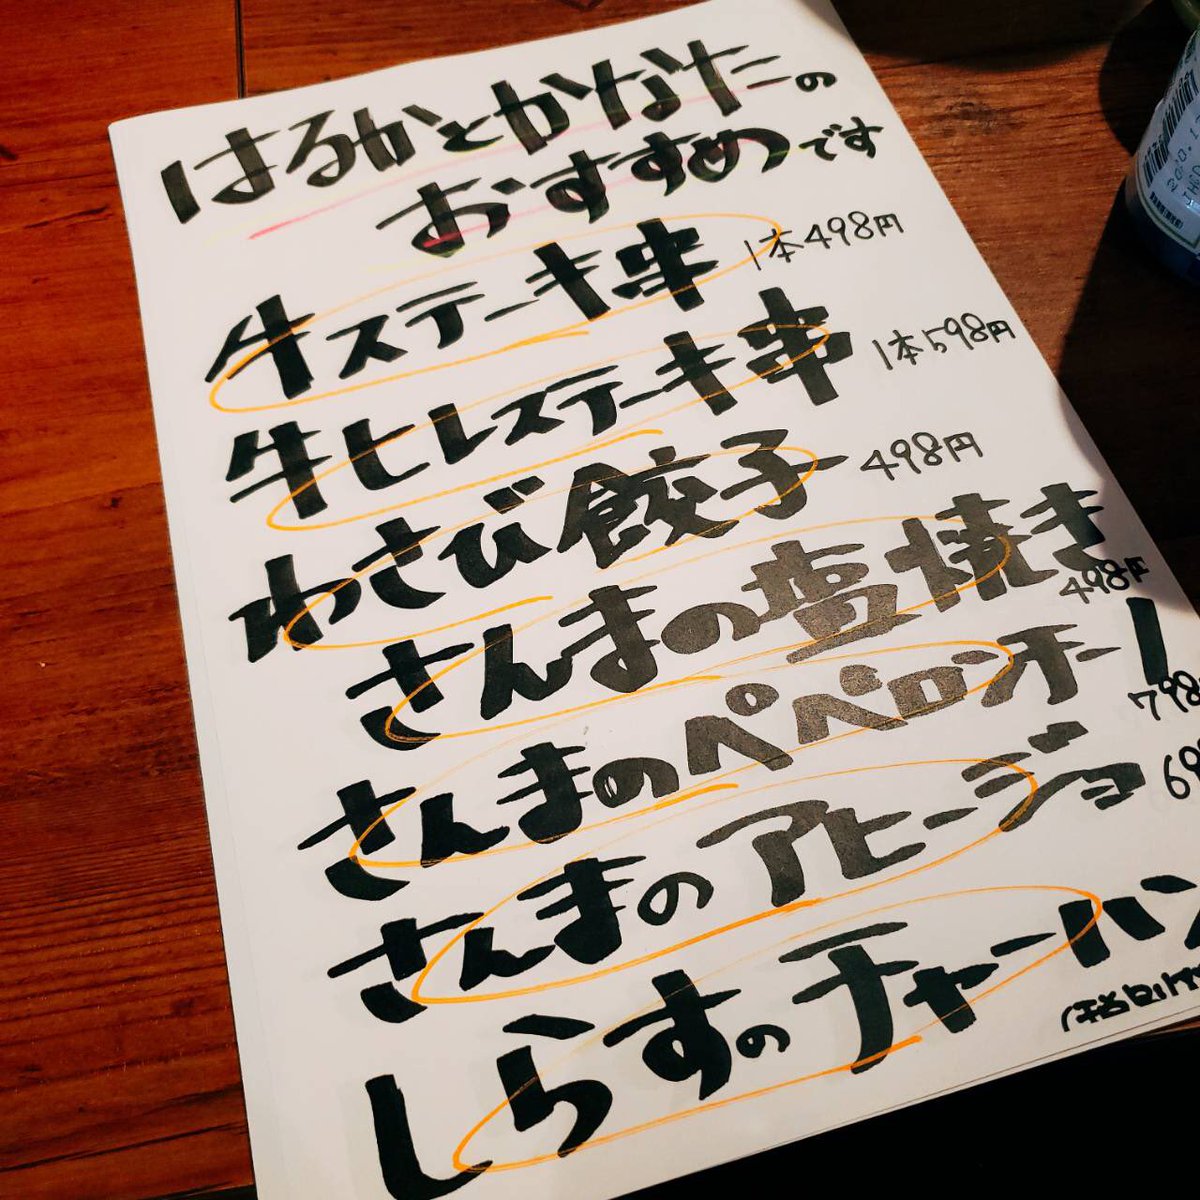 はるかとかなたの
おすすめです
牛ステーキ串 1本498円
牛ヒレステーキ串 1本598円
わさび餃子 498円
さんまの塩焼き
498円
さんまのペペロンチーノ
798
さんまのアヒージョ 69
しらすのチャーハン